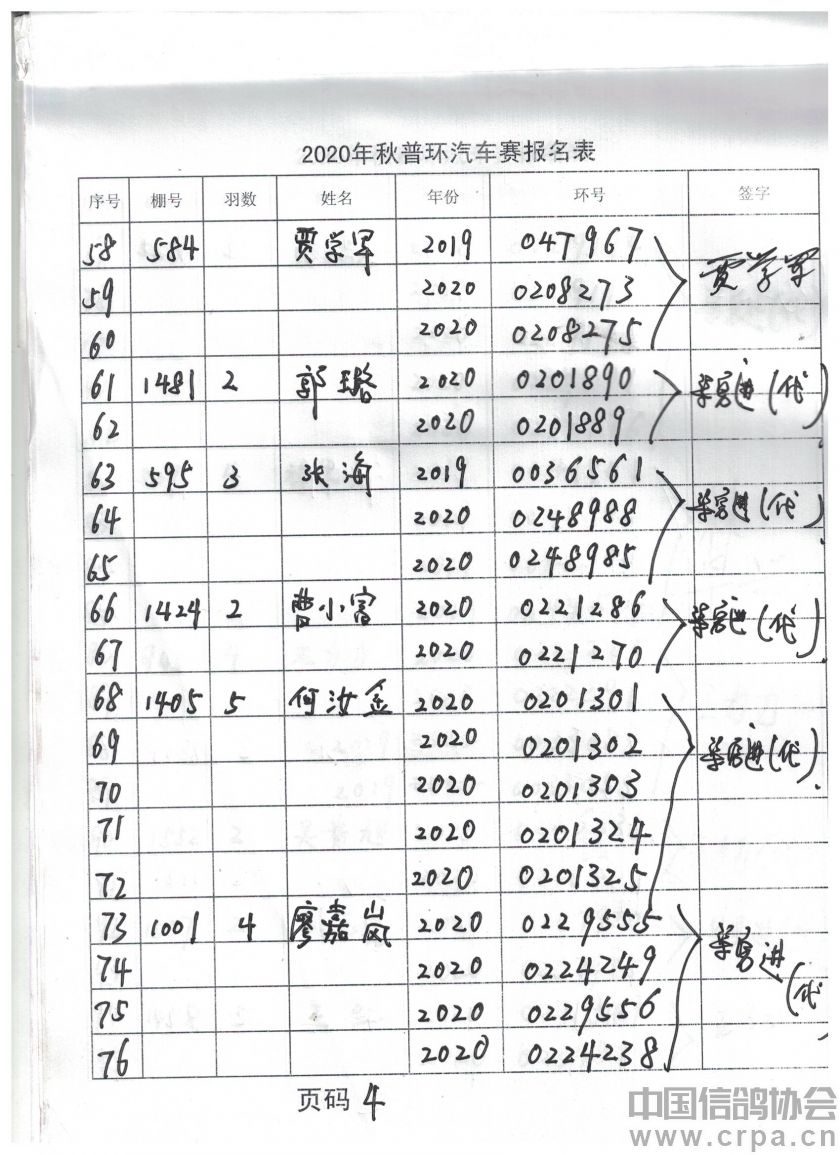 2020年秋普环汽车赛报名表
序号 棚号 羽数 姓名 年份 环号 签字
58 584 贾学军 2019 047967 贾学军
59 2020 0208273
60 2020 0208275
61 1481 2 郭璐 2020 0201890 (代)
62 2020 0201889
63 595 3 张海 2019 0036561
64 2020 0248988 (代)
65 2020 0248985
66 1424 2 曹小富 2020 0221286 (代)
67 2020 0221270
68 1405 5 何汝金 2020 0201301
69 2020 0201302 (代)
70 2020 0201303
71 2020 0201324
72 2020 0201325
73 1001 4 廖嘉岚 2020 0229555
74 2020 0224249
75 2020 0229556 (代
76 2020 0224238
页码 4
中国信鸽协会
www.crpa.cn